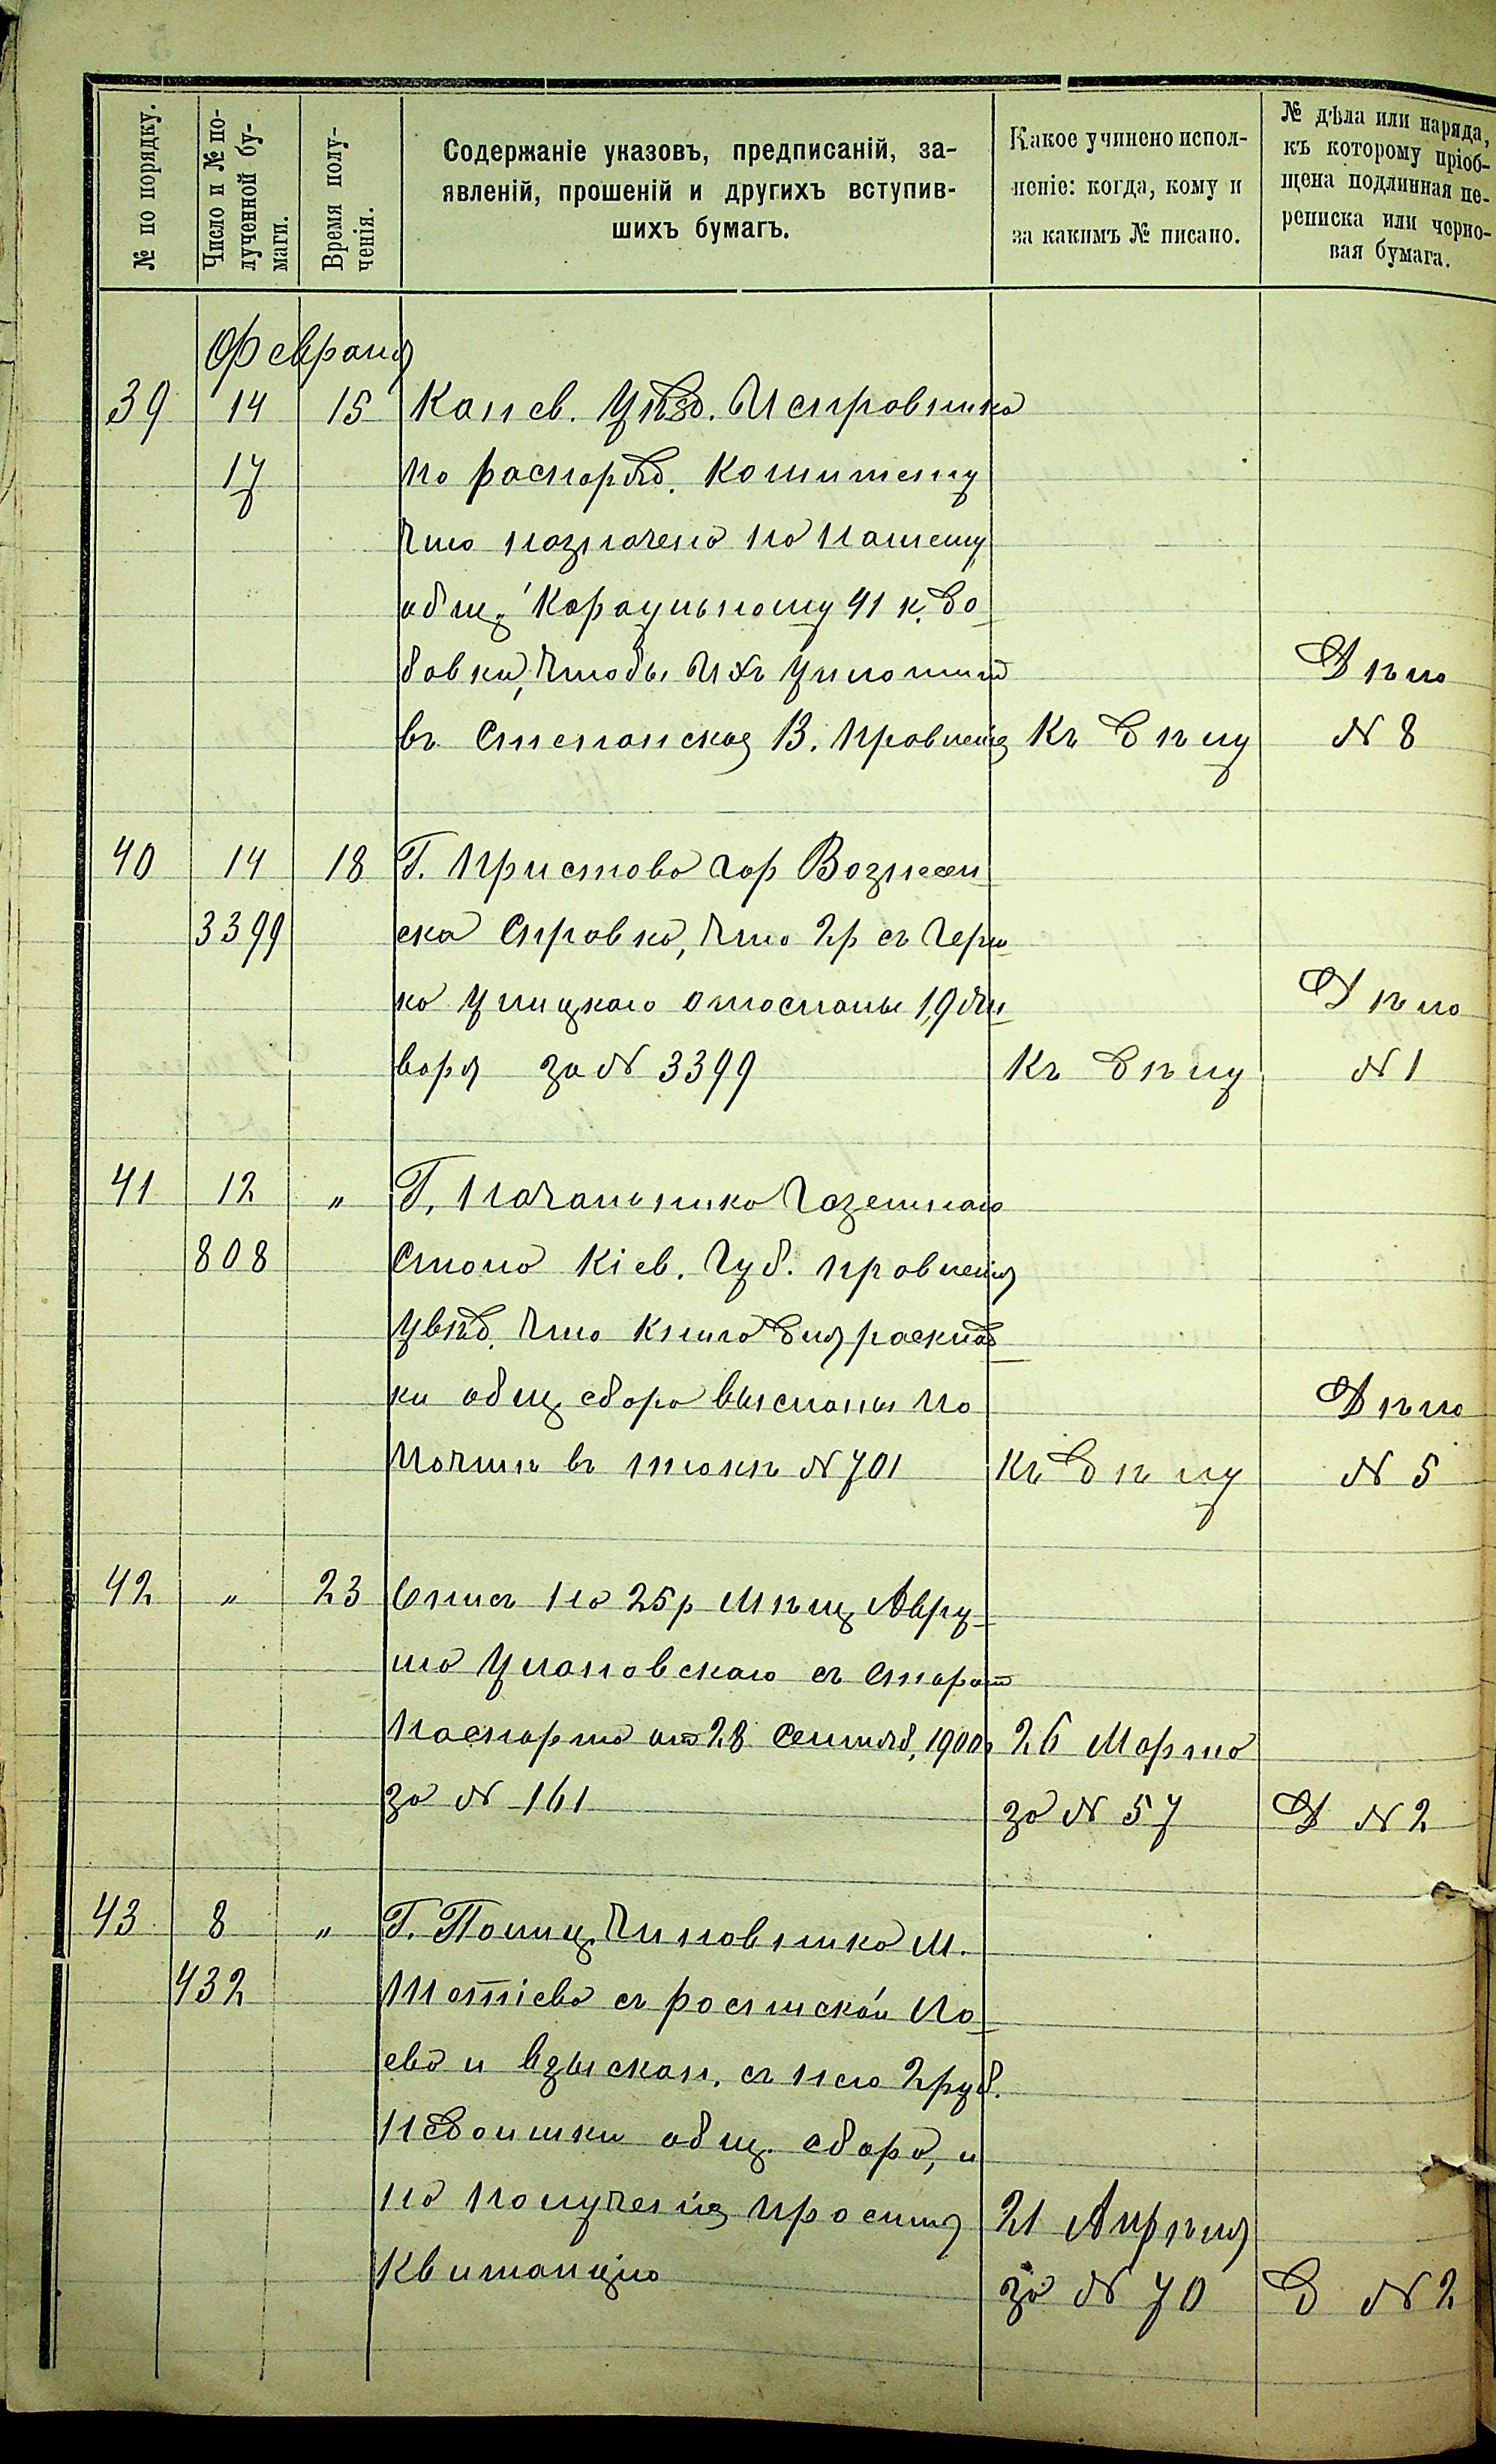 № по порядку.
Число и № по-
лученной бу-
маги.
Время полу-
ченія.
Содержаніе указовъ, предписаній, за-
явленій, прошеній и другихъ вступив-
шихъ бумагъ.
Какое учинено испол-
неніе: когда, кому и
за какимъ № писано.
№ дѣла или наряда,
къ которому пріоб-
щена подлинная пе-
реписка или черно-
вая бумага.
Февраля
39 14 15 Канев. Уѣзд. Исправника
17 по распоряд. Комитету
что назначено по нашему
общ. Караульному 41 к. до
бавки, чтобы ихъ уплотит
Дѣло
въ Степанская В. правленія Къ дѣлу № 8
40 14 18 Г. Пристова гор Вознесен
3399 ска справка, что 2р съ Герш
ка Улицкаго отосланы 19 Ян
Дѣло
варя за № 3399 Къ дѣлу № 1
41 12 " Г. Начальника Газетнаго
808 Стола Кіев. Губ. правленія
Увѣд. что книга для расклад
ки общ сбора высланы по
Дѣло
почтѣ въ тюкѣ № 701 Къ дѣлу № 5
42 " 23 по 25р Мѣщ Авру
ма Улановскаго съ старат
паспорта от 28 Сентяб, 1900г 26 Марта
за № 161 за № 57 Д № 2
43 8 " Г. Полиц. Чиновника М.
432 Тетіева съ роспиской По
ева и взыскан. съ него 2руб.
недоимки общ. сбора, и
по полученія проситъ 21 Апрѣля
Квитанцію за № 70 Д № 2